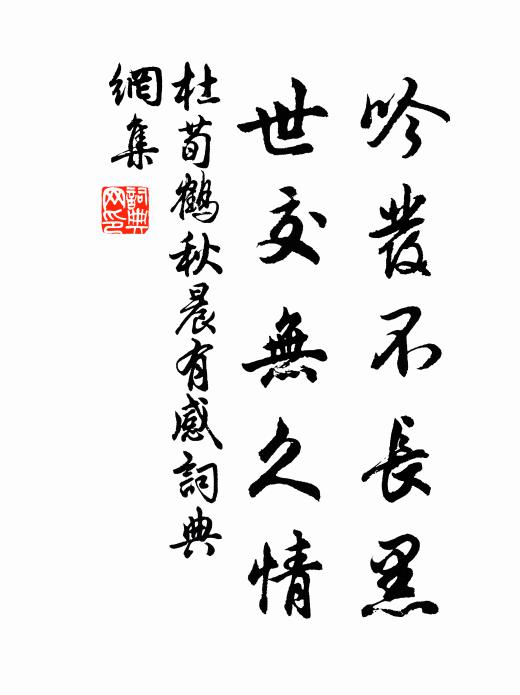 吟髮不長黑
世交無久情
杜荀鶴秋晨有感詞典
網集
詞典
网印